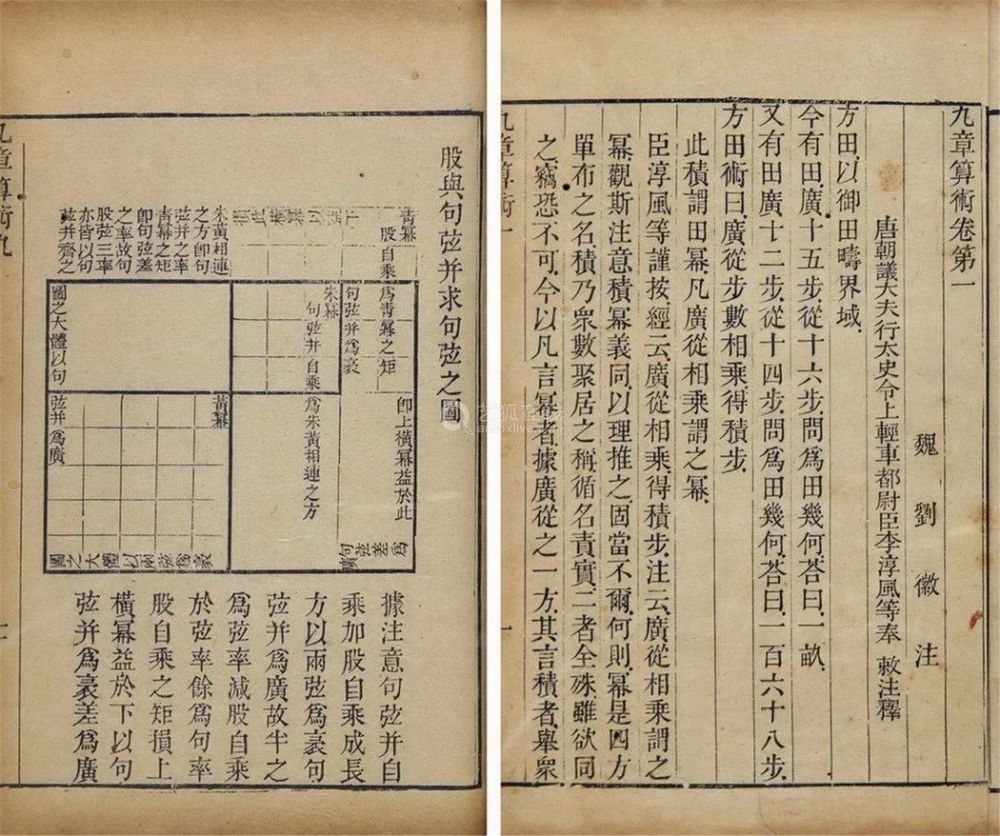 九章算術卷第一
魏劉徽注
唐朝議大夫行太史令上輕車都尉臣李淳風等奉敕注釋
方田以御田疇界域
今有田廣十五步從十六步問爲田幾何荅曰一畝
又有田廣十二步從十四步問爲田幾何荅曰一百六十八步
方田術曰廣從步數相乘得積步
此積謂田冪凡廣從相乘謂之冪
臣淳風等謹按經云廣從相乘得積步注云廣從相乘謂之
冪觀斯注意積冪義同以理推之固當不爾何則冪是四方
單布之名積乃衆數聚居之稱循名責實二者全殊雖欲同
之竊恐不可今以凡言冪者據廣從之一方其言積者舉衆
九章算術一
一
股與句弦并求句弦之圖
青冪
股自乘爲青冪之矩
句弦并爲袤
朱冪
句弦并自乘爲朱黃相連之方
卽上橫冪益於此
句弦差爲廣
朱黃相連
之方卽句
弦并之率
青冪之矩
卽句弦差
之率故句
股弦三率
亦皆以句
弦并齊之
圖之大體以句
弦并爲廣
黃冪
圖之大體以兩弦爲袤
據注意句弦并自
乘加股自乘成長
方以兩弦爲袤句
弦并爲廣故半之
爲弦率減股自乘
於弦率餘爲句率
股自乘之矩損上
橫冪益於下以句
弦并爲袤差爲廣
九章算術九